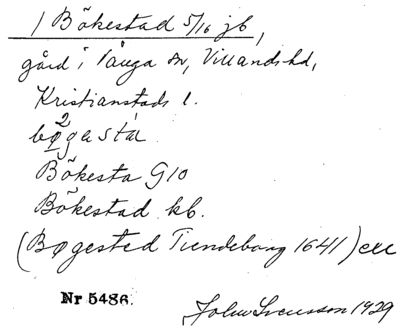 1 Bökestad 5/16 jb,
gård i Vånga sn, Villands hd,
Kristianstads l.
bø2gastà
Bökesta G10
Bökestad kb.
(Bøgested Tiendebog 1641)
Nr 5486.
John Svensson 1929